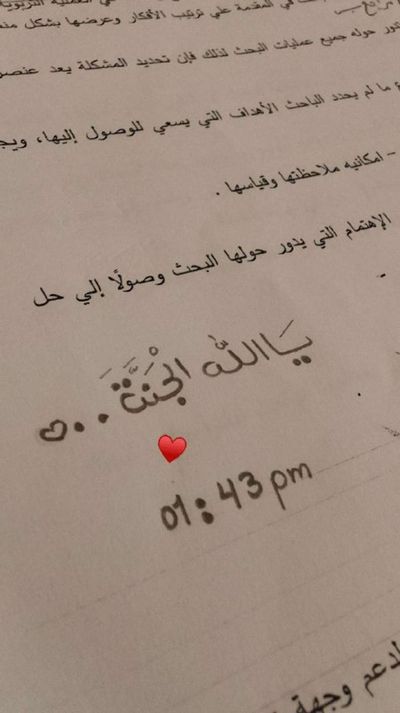 في المقدمة علي ترتيب الأفكار وعرضها بشكل
حوله جميع عمليات البحث لذلك فإن تحديد المشكلة يعد
ما لم يحدد الباحث الأهداف التي يسعي للوصول إليها،
- امكانيه ملاحظتها وقياسها .
الإهتمام التي يدور حولها البحث وصولًا إلي حل
يَا اللّٰه الجْنَّة . . ♡
♥
01:43 pm
وجهة